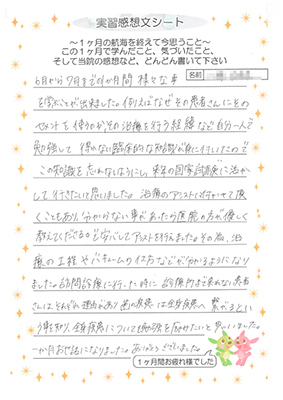 実習感想文シート
〜1ヶ月の航海を終えて今思うこと〜
この1ヶ月で学んだこと、気づいたこと、
そして当院の感想など、どんどん書いて下さい
名前
6月から7月までの1か月間 様々な事
を学ぶことが出来ました。例えばなぜその患者さんにその
セメントを使うのか その治療を行う経緯など 自分一人で
勉強して 得れない臨床的な知識が身に付いていくので
この知識を忘れないようにし、来年の国家試験に活か
して行きたいと思いました。治療のアシストに付かせて頂
くこともあり、分からない事があったら医院の方が優しく
教えてくださるので安心してアシストを行えました。その為、治
療の工程やバキュームの仕方などが分かるようになり
ました。訪問診療に行った時に 診療所まで来れない患者
さんはそれぞれ理由があり 歯の疾患は全身疾患へ繋がるとい
う事を知り、全身疾患についても勉強を深めたいと思いました。
一か月お世話になりました。ありがとうございました。
1ヶ月間お疲れ様でした